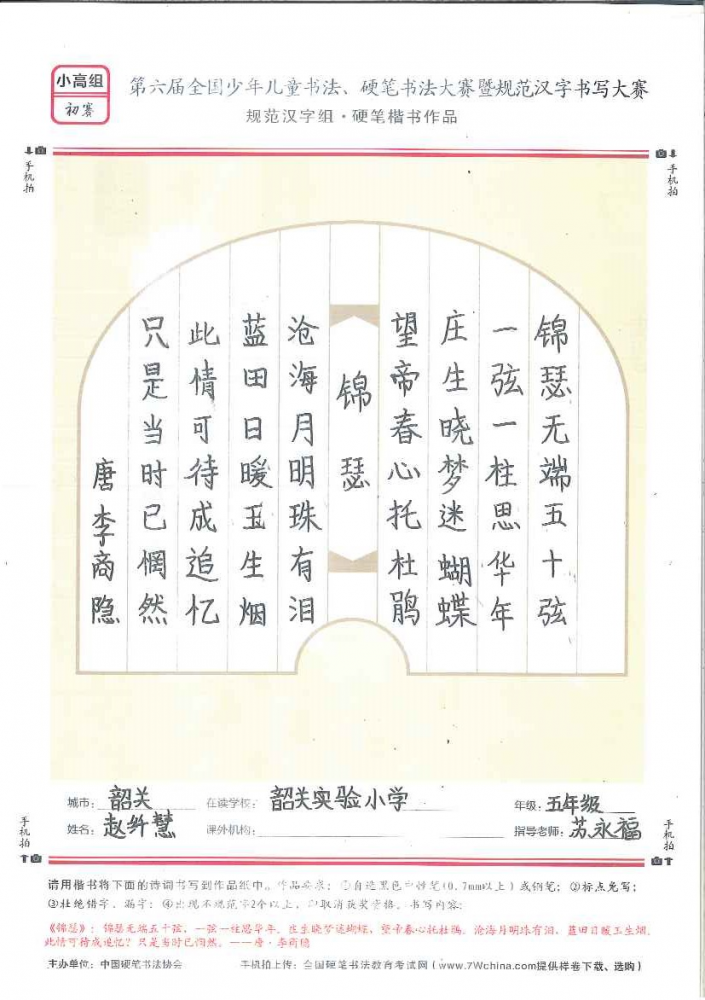 小高组
初赛
第六届全国少年儿童书法、硬笔书法大赛暨规范汉字书写大赛
规范汉字组·硬笔楷书作品
手机拍
手机拍
锦瑟无端五十弦
一弦一柱思华年
庄生晓梦迷蝴蝶
望帝春心托杜鹃
锦瑟
沧海月明珠有泪
蓝田日暖玉生烟
此情可待成追忆
只是当时已惘然
唐李商隐
城市：韶关 在读学校：韶关实验小学 年级：五年级
姓名：赵纤慧 课外机构： 指导老师：苏永福
手机拍
手机拍
请用楷书将下面的诗词书写到作品纸中。作品要求：①自选黑色中性笔(0.7mm以上)或钢笔；②标点免写；
③杜绝错字、漏字；④出现不规范字2个以上，即取消获奖资格。书写内容：
《锦瑟》：锦瑟无端五十弦，一弦一柱思华年。庄生晓梦迷蝴蝶，望帝春心托杜鹃。沧海月明珠有泪，蓝田日暖玉生烟。
此情可待成追忆？只是当时已惘然。——唐·李商隐
主办单位：中国硬笔书法协会 手机拍上传：全国硬笔书法教育考试网（www.7Wchina.com提供样卷下载、选购）